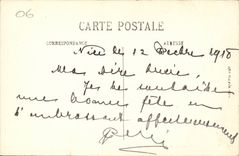 06
CARTE POSTALE
CORRESPONDANCE ADRESSE
Nice le 12 Decbre 1918
Ma
Je te souhaite
une bonne fête en
t'embrassant affectueusement